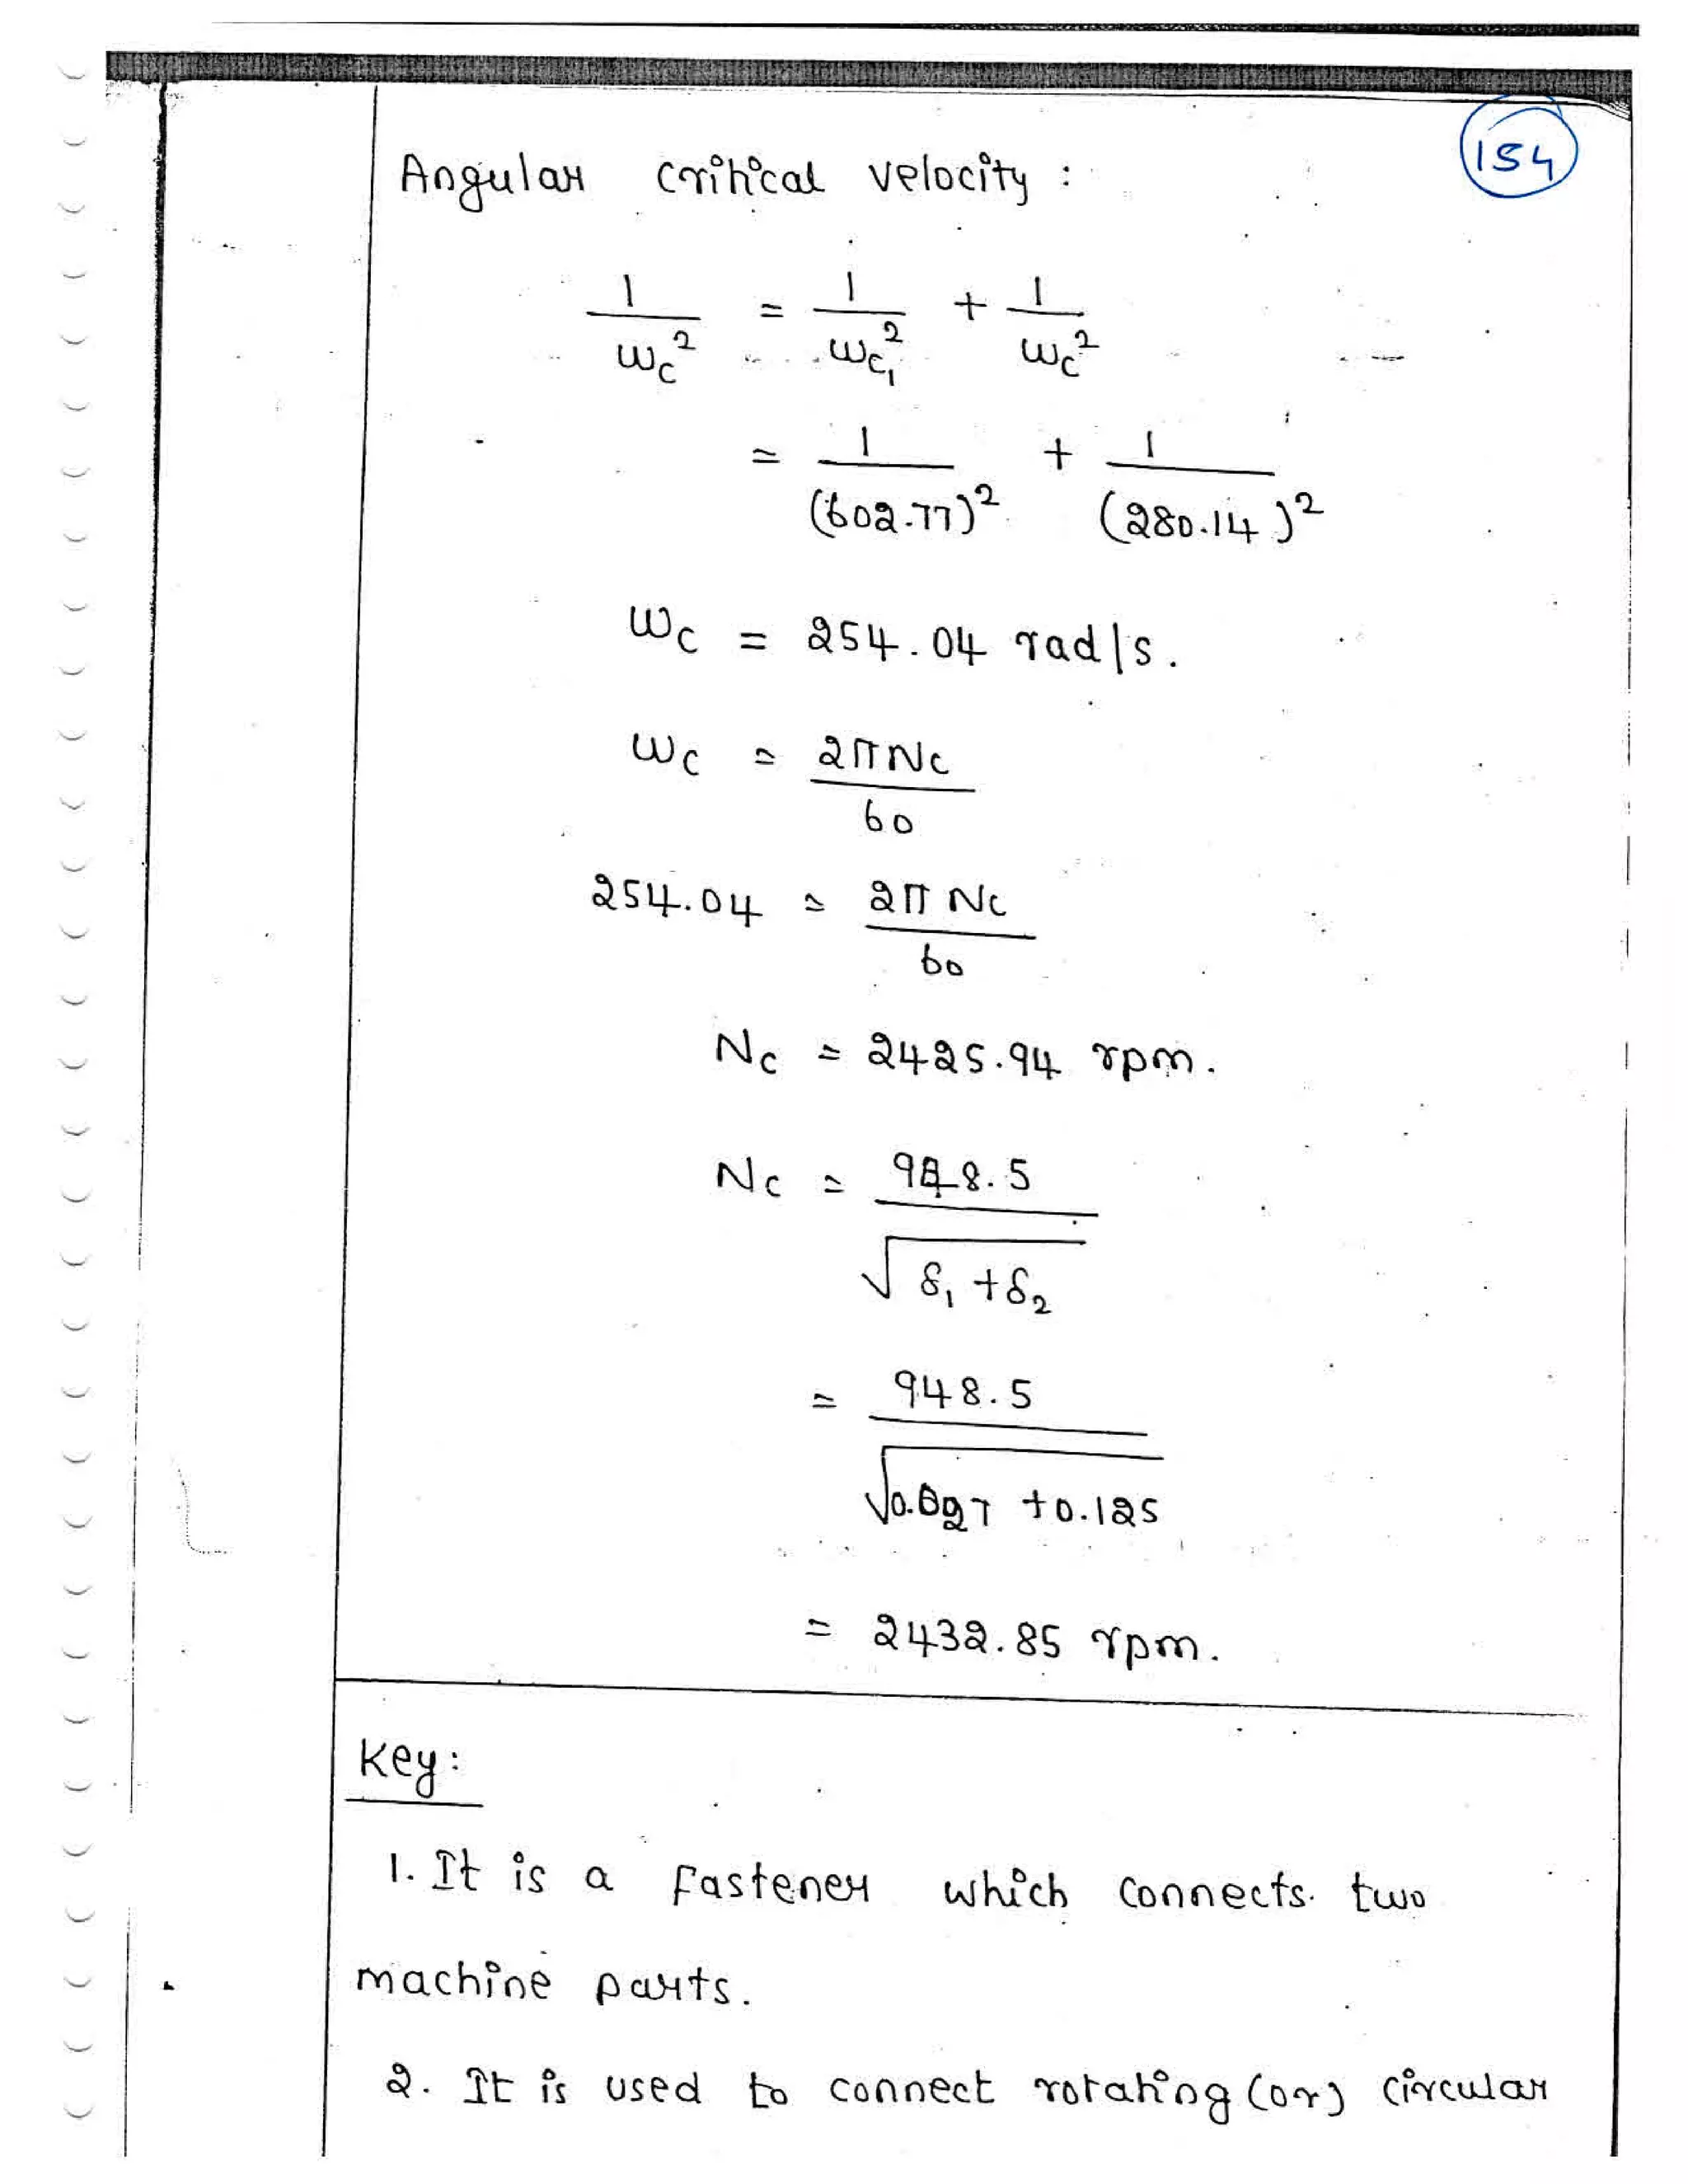 154
Angular critical velocity :
1/ωc² = 1/ωc₁² + 1/ωc²
= 1/(602.77)² + 1/(280.14)²
ωc = 254.04 rad/s.
ωc = 2πNc/60
254.04 = 2πNc/60
Nc = 2425.94 rpm.
Nc = 948.5/√δ₁+δ₂
= 948.5/√0.027 +0.125
= 2432.85 rpm.
Key:
1. It is a fastener which connects two
machine parts.
2. It is used to connect rotating (or) circular